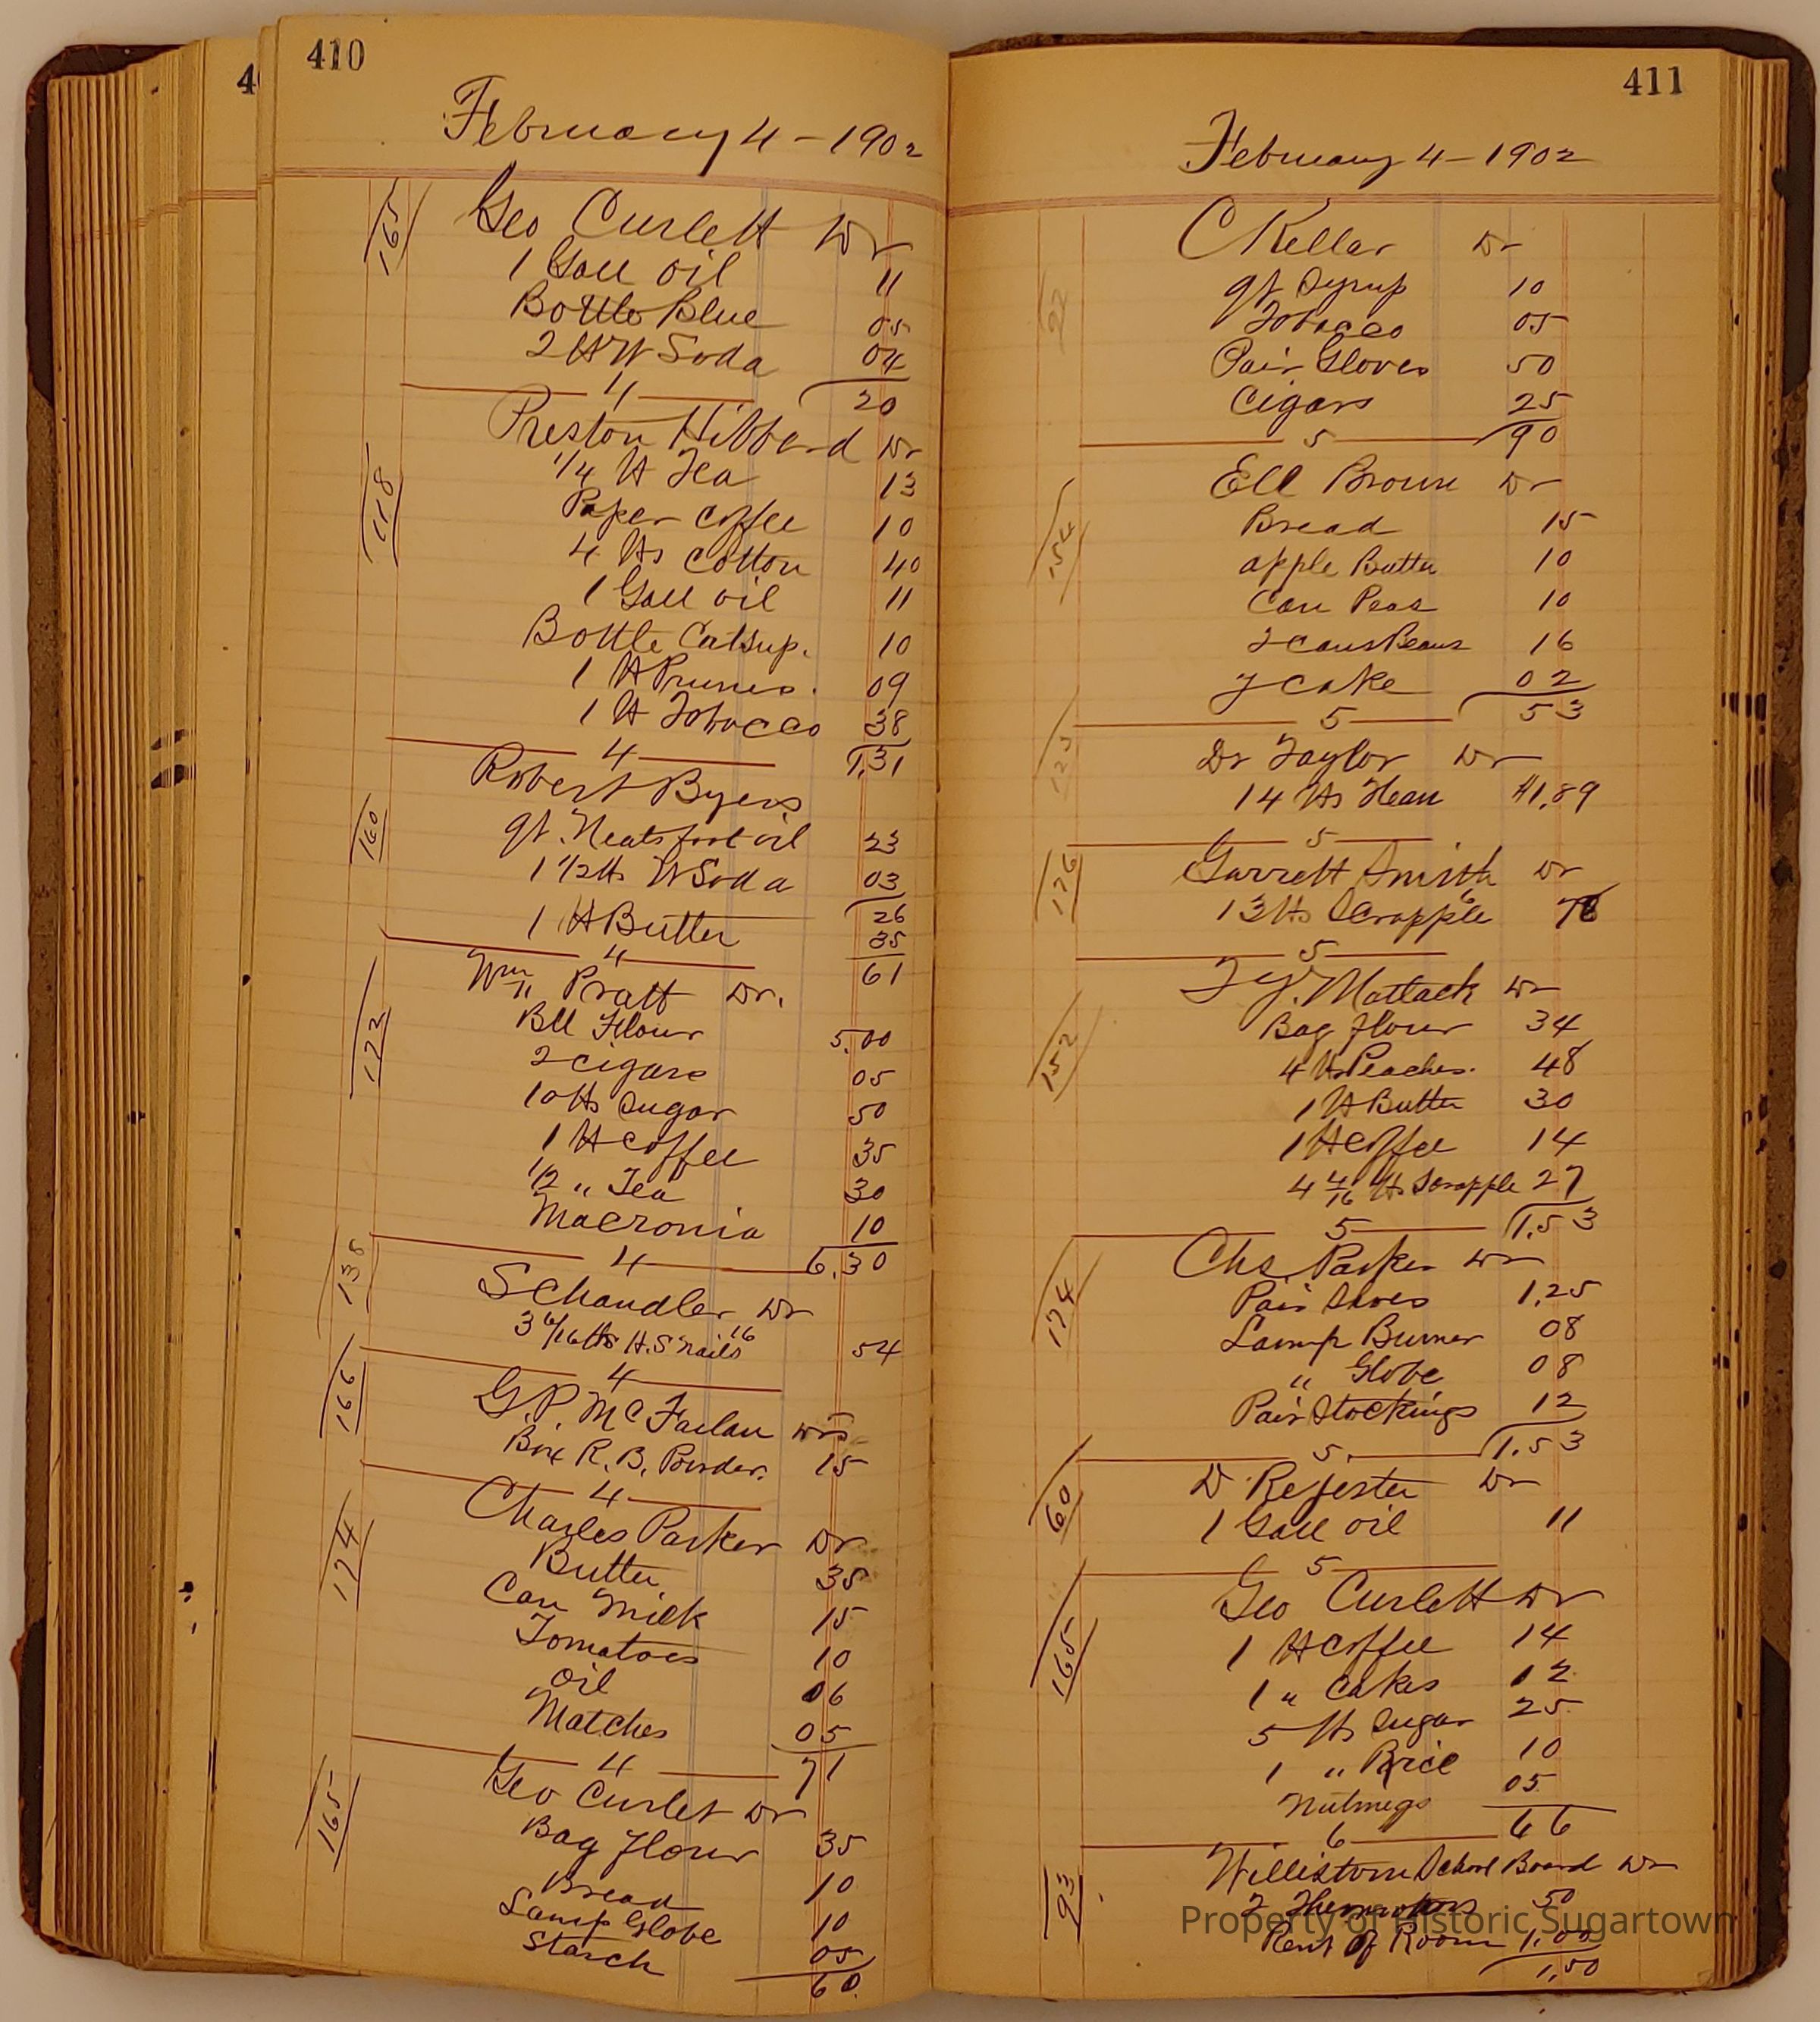 410
February 4 - 1902
165
Geo Curlett Dr
1 Gall oil 11
Bottle Blue 05
2 lb W Soda 04
20
4
Preston Hibberd Dr
118
1/4 lb Tea 13
Paper Coffee 10
4 lbs Cotton 40
1 Gall oil 11
Bottle Catsup. 10
1 lb Prunes. 09
1 lb Tobacco 38
1.31
4
Robert Byers
160
qt. Neatsfoot oil 23
1 1/2 lbs W Soda 03
26
1 lb Butter 35
61
4
Wm Pratt Dr.
122
Bll Flour 5.00
2 cigars 05
10 lbs Sugar 50
1 lb Coffee 35
1/2 " Tea 30
Macronia 10
4 6.30
138
S Chandler Dr
3 6/16 lbs H.S nails 16 54
4
166
G.P. McFarlan Dr
Box R. B. Powder. 15
4
Charles Parker Dr
174
Butter 35
Can Milk 15
Tomatoes 10
Oil 06
Matches 05
4 71
Geo Curlet Dr
165
Bag Flour 35
Bread 10
Lamp Globe 10
Starch 05
60
4
411
February 4 - 1902
C Kellar Dr
22
qt Syrup 10
Tobacco 05
Pair Gloves 50
Cigars 25
5 90
Ell Brown Dr
154
Bread 15
apple Butter 10
Can Peas 10
2 cans Beans 16
Y cake 02
5 53
Dr Taylor Dr
123
14 lbs Ham $1.89
5
Garrett Smith Dr
176
13 lbs Scrapple 6 78
5
T. J. Matlack Dr
152
Bag flour 34
4 lbs Peaches. 48
1 lb Butter 30
1 lb Coffee 14
4 4/16 lbs Scrapple 27
5 1.53
Chs. Parker Dr
174
Pair Shoes 1.25
Lamp Burner 08
" Globe 08
Pair Stockings 12
5 1.53
D Regester Dr
60
1 Gall oil 11
5
Geo Curlett Dr
165
1 lb Coffee 14
1 " Cakes 12
5 lbs Sugar 25
1 " Rice 10
Nutmegs 05
6 66
Willistown School Board Dr
93
2 50
Rent of Room 1.00
1.50
Property of Historic Sugartown